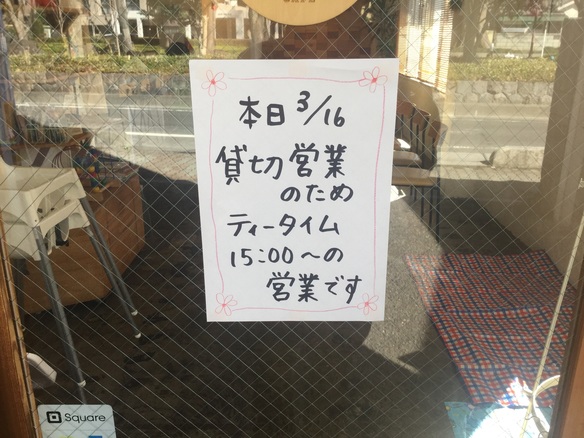 本日 3/16
貸切営業
のため
ティータイム
15:00〜の
営業です
Square